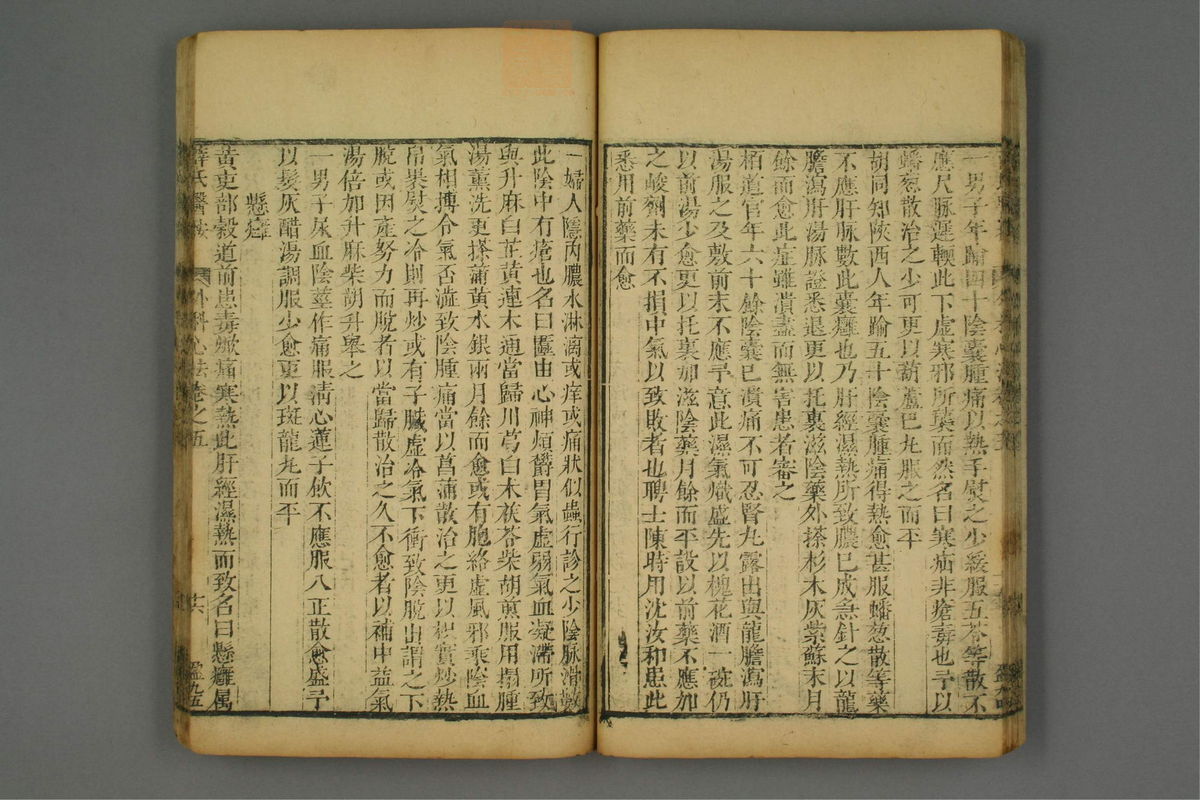 一男子年踰四十陰囊腫痛以熱手熨之少緩服五苓等散不
應尺脉遲輭此下虛寒邪所襲而然名曰寒疝非瘡毒也予以
蟠葱散治之少可更以葫蘆巴丸服之而平
胡同知陝西人年踰五十陰囊腫痛得熱愈甚服蟠葱散等藥
不應肝脉數此囊癰也乃肝經濕熱所致膿已成急針之以龍
膽瀉肝湯脉證悉退更以托裏滋陰藥外搽杉木灰紫蘇末月
餘而愈此症雖潰盡而無害患者審之
柏道官年六十餘陰囊已潰痛不可忍腎丸露出與龍膽瀉肝
湯服之及敷前末不應予意此濕氣熾盛先以槐花酒一碗仍
以前湯少愈更以托裏加滋陰藥月餘而平設以前藥不應加
之峻劑未有不損中氣以致敗者也聘士陳時用沈汝和患此
悉用前藥而愈
一婦人隱內膿水淋漓或痒或痛狀似蟲行診之少陰脉滑數
此陰中有瘡也名曰䘌由心神煩欝胃氣虛弱氣血凝滯所致
與升麻白芷黃連木通當歸川芎白木茯苓柴胡煎服用㩉腫
湯薰洗更搽蒲黃水銀兩月餘而愈或有胞絡虛風邪乘陰血
氣相搏令氣否澁致陰腫痛當以菖蒲散治之更以枳實炒熱
帛裹熨之冷則再炒或有子臟虛冷氣下衝致陰脫出謂之下
脫或因産努力而脫者以當歸散治之久不愈者以補中益氣
湯倍加升麻柴胡升舉之
一男子尿血陰莖作痛服淸心蓮子飲不應服八正散愈盛予
以髮灰醋湯調服少愈更以斑龍丸而平
懸癰
黃吏部穀道前患毒㿋痛寒熱此肝經濕熱而致名曰懸癰属
薛氏醫按 外科心法卷之五 廿六 盈九五